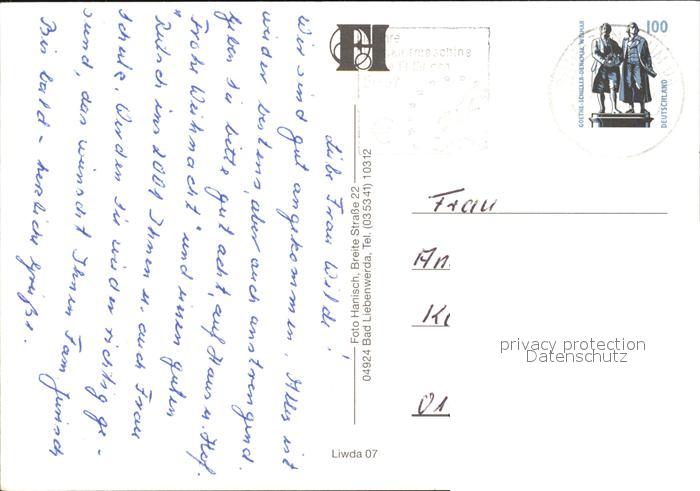 Liebe Frau Wilde!
Wir sind gut angekommen. Alles ist
wieder bestens, aber auch anstrengend.
Geben Sie bitte gut acht, auf Haus u. Hof.
"Frohe Weihnacht" und einen guten
"Rutsch ins 2001 Ihnen u. auch Frau
Schulz. Werden Sie wieder richtig ge-
sund, das wünscht Ihnen Fam. Jurisch
Bis bald - herzliche Grüße.
FH
Foto Hanisch, Breite Straße 22
04924 Bad Liebenwerda, Tel. (035341) 10312
Liwda 07
GOETHE-SCHILLER-DENKMAL WEIMAR
100
DEUTSCHLAND
Frau
An
K
01
privacy protection
Datenschutz